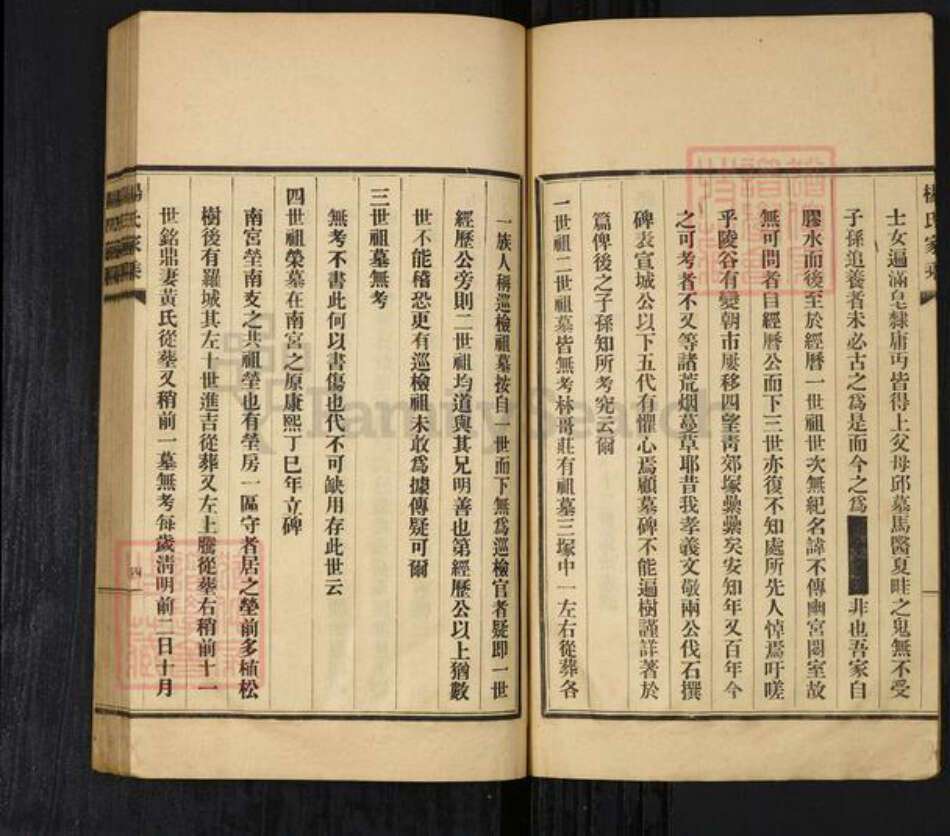 士女遍滿皂隸庸丐皆得上父母邱墓馬醫夏畦之鬼無不受
子孫追養者未必古之爲是而今之爲 非也吾家自
膠水而後至於經曆一世祖世次無紀名諱不傳幽宮閟室故
無可問者自經曆公而下三世亦復不知處所先人悼焉吁嗟
乎陵谷有變朝市屢移四望靑郊塚纍纍矣安知年又百年今
之可考者不又等諸荒烟蔓草耶昔我孝義文敬兩公伐石撰
碑表宣城公以下五代有懼心焉顧墓碑不能遍樹謹詳著於
篇俾後之子孫知所考究云爾
一世祖二世祖墓皆無考林哥莊有祖墓三塚中一左右從葬各
一族人稱巡檢祖墓按自一世而下無爲巡檢官者疑即一世
經歷公旁則二世祖均道與其兄明善也第經歷公以上猶數
世不能稽恐更有巡檢祖未敢爲據傳疑可爾
三世祖墓無考
無考不書此何以書傷也代不可缺用存此世云
四世祖榮墓在南宮之原康熙丁巳年立碑
南宮塋南支之共祖塋也有塋房一區守者居之塋前多植松
樹後有羅城其左十世進吉從葬又左上騰從塟右稍前十一
世銘鼎妻黃氏從塟又稍前一墓無考每歲淸明前二日十月
楊氏家乘
楊氏家乘
四
FamilySearch